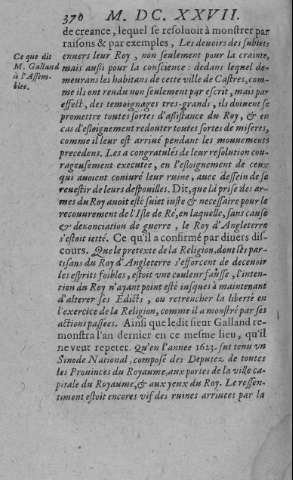 370 M. DC. XXVII.
de creance, lequel se resoluoit à monstrer par
raisons & par exemples, Les deuoirs des subiets
enuers leur Roy, non seulement pour la crainte,
mais aussi pour la conscience: dedans lequel de-
meurans les habitans de cette ville de Castres, com-
me ils ont rendu non seulement par escrit, mais par
effect, des tesmoignages tres-grands, ils doiuent se
promettre toutes sortes d'assistance du Roy, & en
cas d'esloignement redouter toutes sortes de miseres,
comme il leur est arriué pendant les mouuements
precedens. Les a congratulés de leur resolution cou-
rageusement executee, en l'esloignement de ceux
qui auoient coniuré leur ruine, auec dessein de se
reuestir de leurs despoüilles. Dit, que la prise des ar-
mes du Roy auoit esté suiet iuste & necessaire pour le
recouurement de l'Isle de Ré, en laquelle, sans cause
& denonciation de guerre, le Roy d'Angleterre
s'estoit ietté. Ce qu'il a confirmé par diuers dis-
cours. Que le pretexte de la Religion, dont les par-
tisans du Roy d'Angleterre s'efforcent de deceuoir
les esprits foibles, estoit vne couleur faulse, l'inten-
tion du Roy n'ayant point esté iusques à maintenant
d'alterer ses Edicts, ou retrencher la liberté en
l'exercice de la Religion, comme il a monstré par ses
actions passees. Ainsi que ledit sieur Galland re-
monstra l'an dernier en ce mesme lieu, qu'il
ne veut repeter. Qu'en l'annee 1623. fut tenu vn
Sinode National, composé des Deputez de toutes
les Prouinces du Royaume, aux portes de la ville ca-
pitale du Royaume, & aux yeux du Roy. Le ressen-
timent estoit encores vif des ruines arriuees par la
Ce que dit
M. Galland
à l'Assem-
blee.